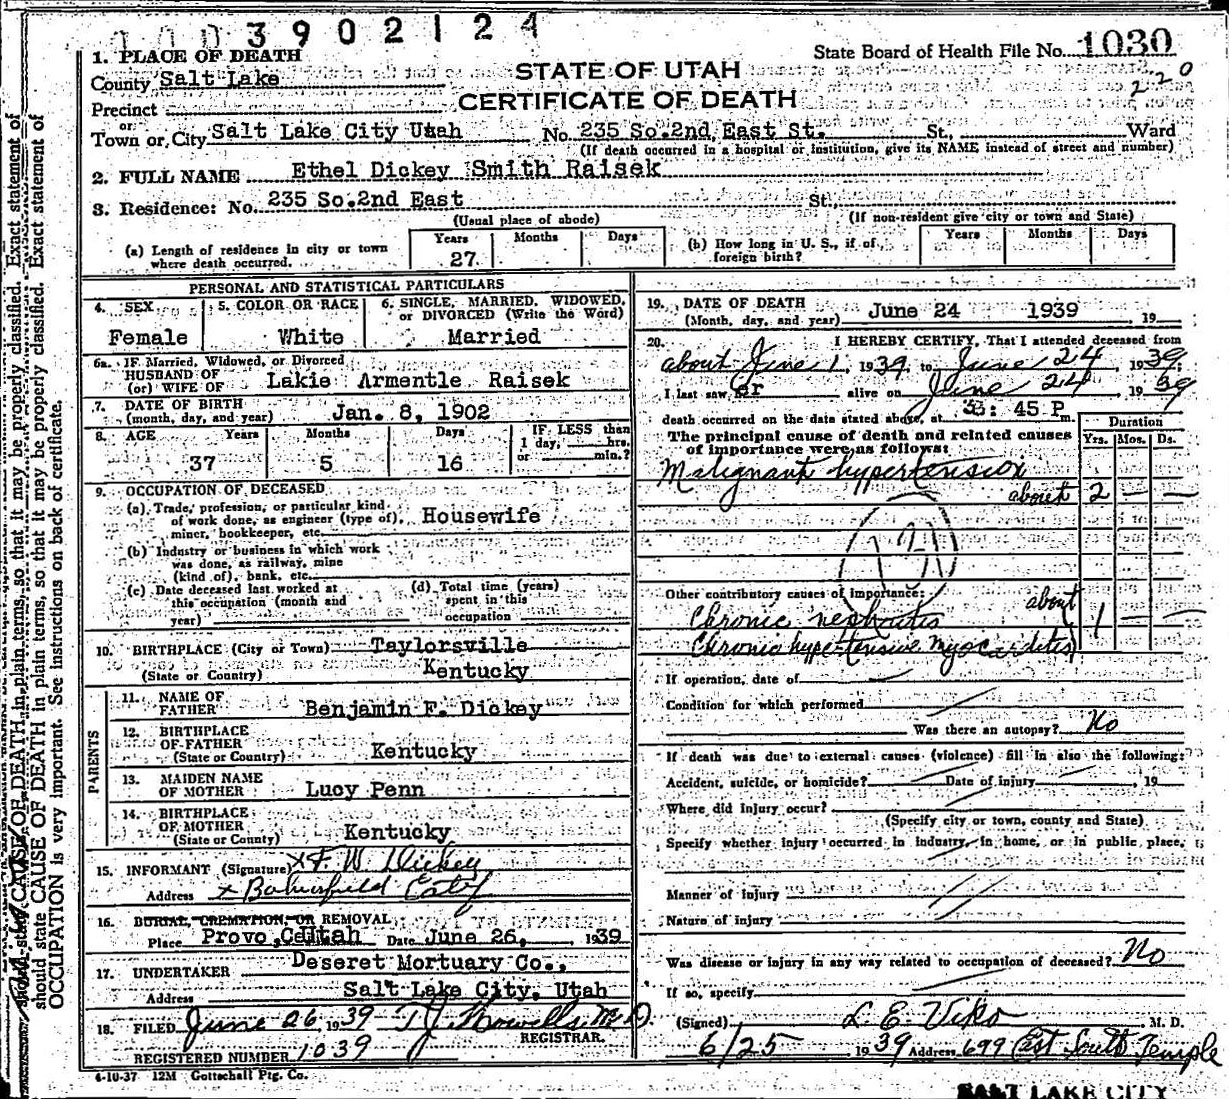 1003902124
State Board of Health File No. 1030
220
1. PLACE OF DEATH
County Salt Lake
STATE OF UTAH
CERTIFICATE OF DEATH
Precinct
or
Town or City Salt Lake City Utah No. 235 So.2nd East St. St., Ward
(If death occurred in a hospital or institution, give its NAME instead of street and number)
2. FULL NAME Ethel Dickey Smith Raisek
3. Residence: No. 235 So.2nd East St.
(Usual place of abode) (If non-resident give city or town and State)
(a) Length of residence in city or town where death occurred. Years 27 Months Days
(b) How long in U. S., if of foreign birth? Years Months Days
should state CAUSE OF DEATH in plain terms, so that it may be properly classified. Exact statement of
OCCUPATION is very important. See instructions on back of certificate.
PERSONAL AND STATISTICAL PARTICULARS
4. SEX 5. COLOR OR RACE 6. SINGLE, MARRIED, WIDOWED, or DIVORCED (Write the Word)
Female White Married
6a. IF Married, Widowed, or Divorced
HUSBAND OF
(or) WIFE OF Lakie Armentle Raisek
7. DATE OF BIRTH
(month, day, and year) Jan. 8, 1902
8. AGE Years Months Days IF LESS than
1 day, hrs.
or min.?
37 5 16
9. OCCUPATION OF DECEASED
(a) Trade, profession, or particular kind
of work done, as engineer (type of), Housewife
miner, bookkeeper, etc.
(b) Industry or business in which work
was done, as railway, mine
(kind of), bank, etc.
(c) Date deceased last worked at
this occupation (month and
year)
(d) Total time (years)
spent in this
occupation
10. BIRTHPLACE (City or Town) Taylorsville
(State or Country) Kentucky
PARENTS
11. NAME OF
FATHER Benjamin F. Dickey
12. BIRTHPLACE
OF FATHER Kentucky
(State or Country)
13. MAIDEN NAME
OF MOTHER Lucy Penn
14. BIRTHPLACE
OF MOTHER Kentucky
(State or County)
15. INFORMANT (Signature) x F. W. Dickey
Address x
16. BURIAL, CREMATION, OR REMOVAL
Place Provo, Utah Date June 26, 1939
17. UNDERTAKER Deseret Mortuary Co.,
Address Salt Lake City, Utah
18. FILED June 26 1939 T J Howells M D
REGISTRAR.
REGISTERED NUMBER 1039
4-10-37 12M Gottschall Ptg. Co.
19. DATE OF DEATH
(Month, day, and year) June 24 1939 , 19
20. I HEREBY CERTIFY, That I attended deceased from
about June 1, 1939, to June 24, 1939.
I last saw er alive on June 24 1939
death occurred on the date stated above, at 3: 45 P m.
The principal cause of death and related causes
of importance were as follows:
Duration
Yrs. Mos. Ds.
Malignant hypertension
about 2 — —
131
Other contributory causes of importance:
about
Chronic nephritis 1 —
Chronic hypertensive myocarditis
If operation, date of
Condition for which performed
Was there an autopsy? No
If death was due to external causes (violence) fill in also the following:
Accident, suicide, or homicide? Date of injury , 19
Where did injury occur?
(Specify city or town, county and State)
Specify whether injury occurred in industry, in home, or in public place,
Manner of injury
Nature of injury
Was disease or injury in any way related to occupation of deceased? No
If so, specify
(Signed) L. E. Viko , M. D.
6/25 1939 Address 699 East South Temple
SALT LAKE CITY